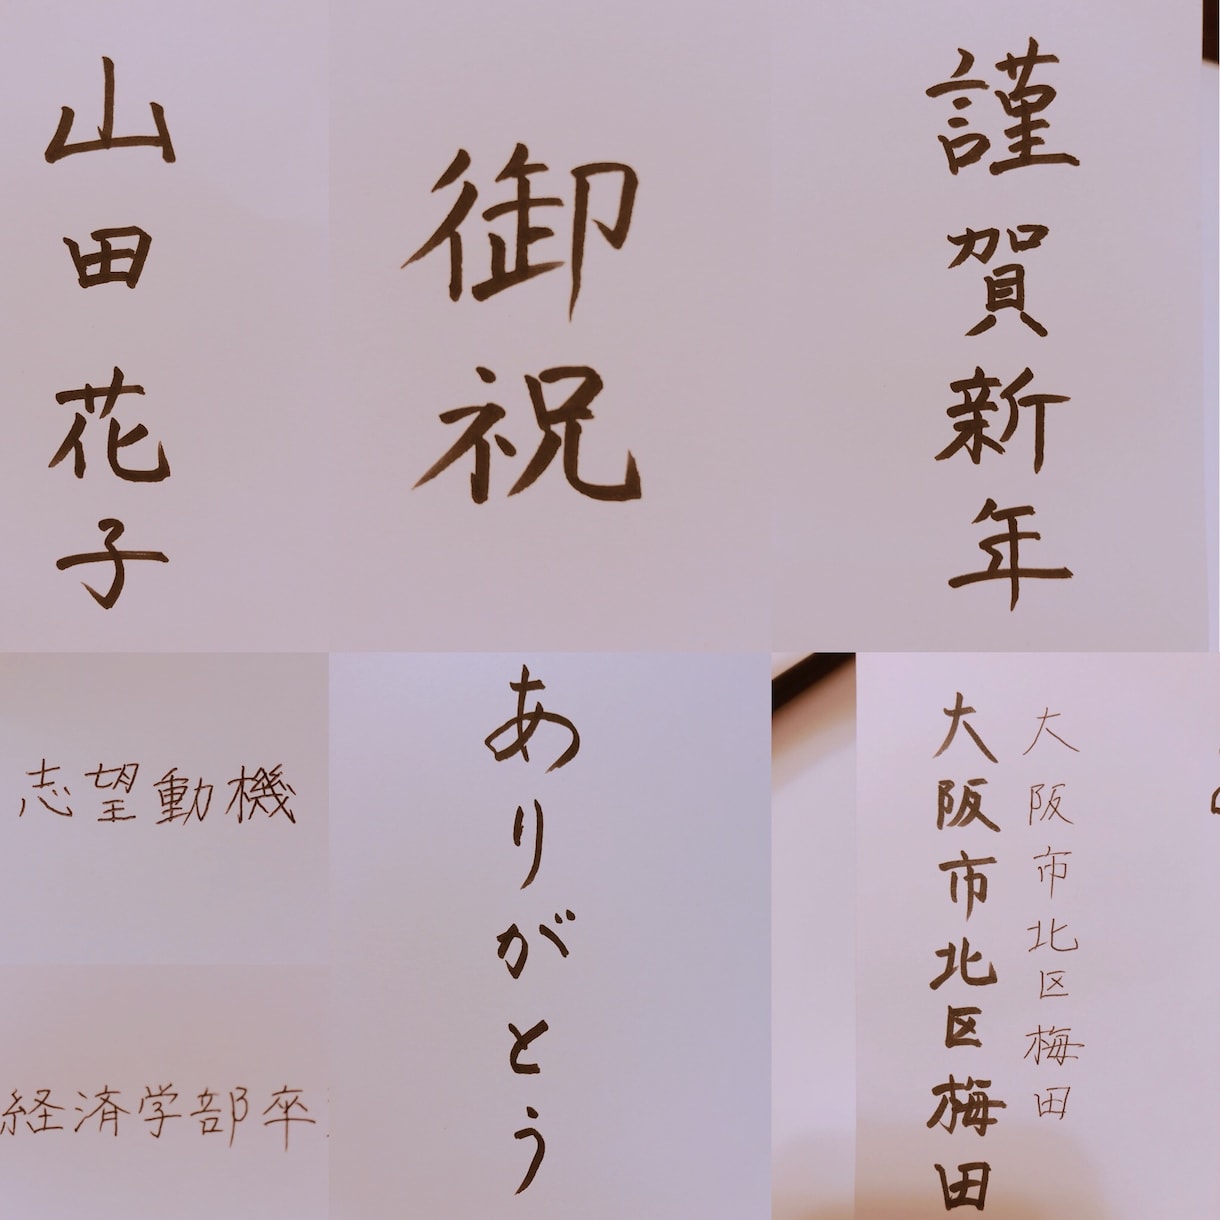 山田花子
御祝
謹賀新年
志望動機
経済学部卒
ありがとう
大阪市北区梅田
大阪市北区梅田